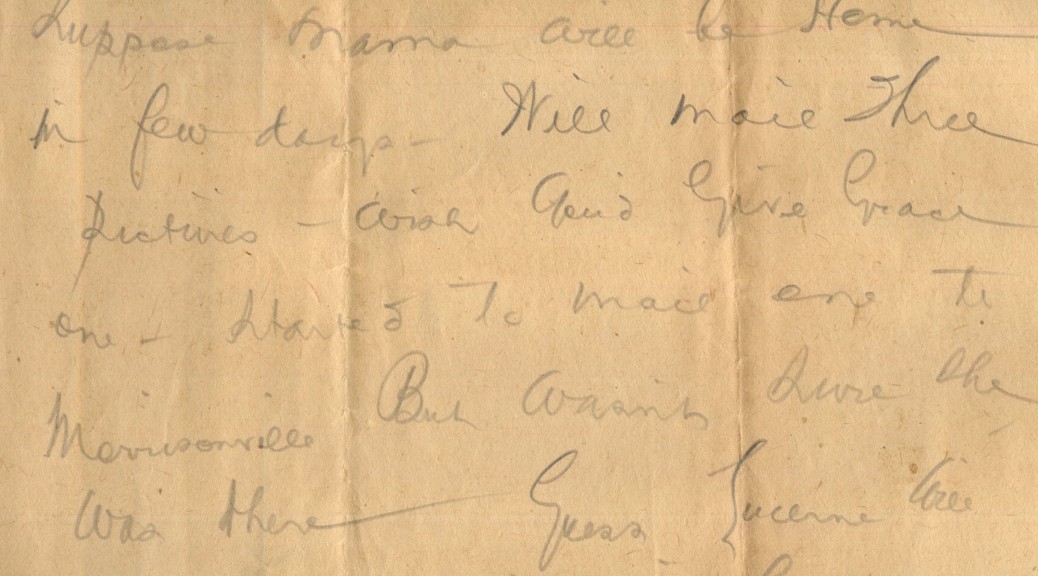 Suppose Mama will be Home
in few days - Will mail Three
Pictures - wish you'd Give Grace
one - Started To mail one to
Morrisonville But wasn't sure she
was there Guess Lucerne will